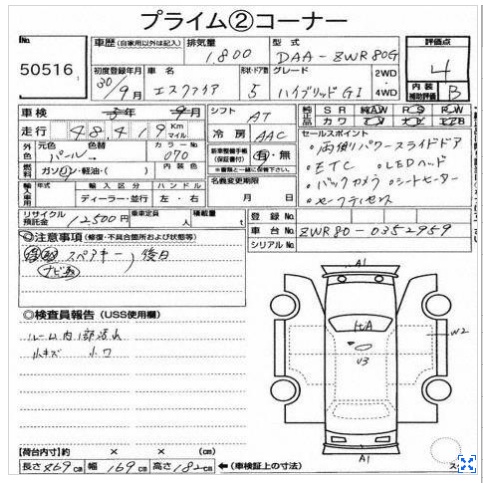 プライム②コーナー
No.
50516
車歴 (自家用以外は記入) 排気量 1,800 型式 DAA-ZWR80G
初度登録年月 30/9月 車名 エスクァイア 形状・ドア数 5 グレード ハイブリッドGI 2WD・4WD
評価点 4
内装補助評価 B
車検 年 9月
走行 48,419 Km マイル
シフト AT
冷房 AAC
外色 元色 パール 色替 カラーNo. 070
燃料 ガソリン・軽油・( ) 内装色
新車整備手帳(保証書付) 有・無
※書類と一緒に保管下さい。
名義変更期限 月 日
純正品 SR AW PS PW
カワ TV
セールスポイント
・両側パワースライドドア
・ETC ・LEDヘッド
・バックカメラ ・シートヒーター
・セーフティセンス
輸入車用 年式 輸入区分 ディーラー・並行 ハンドル 左・右
リサイクル預託金 12500円 乗車定員 人 積載量 t
登録No.
車台No. ZWR80-0352959
シリアルNo.
◎注意事項 (修復・不具合箇所および状態等)
スペアキー 後日
ナビ
◎検査員報告 (USS使用欄)
ルーム内1部汚れ
小キズ 小ワ
A1
W2
U3
A1
【荷台内寸】約 × × (cm)
長さ 469cm 幅 169cm 高さ 182cm ←(車検証上の寸法)